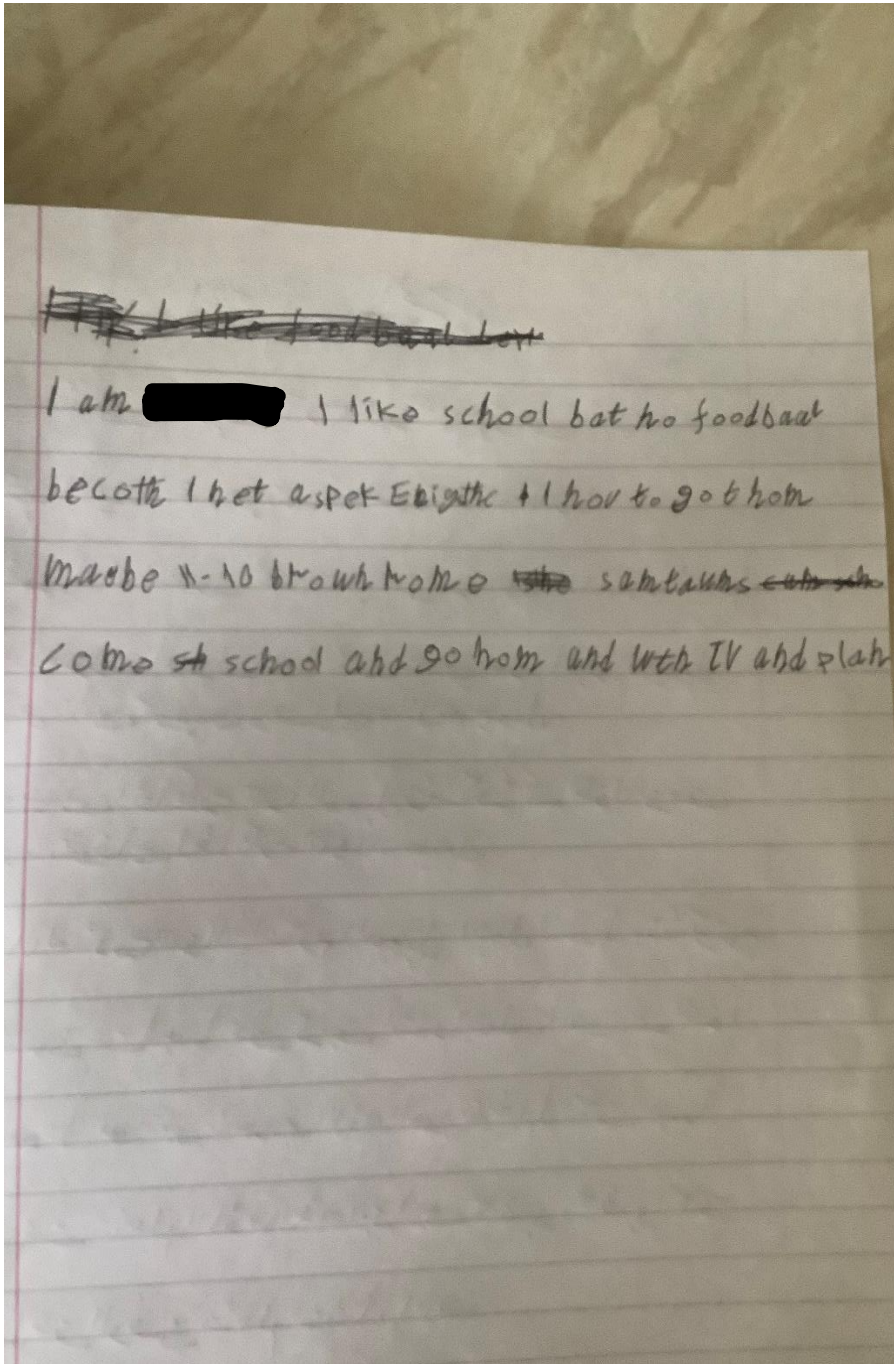 I like foodbaal
I am I like school bat no foodbaal
becoth I net aspek Enigthe I hov to go t hom
maebe 11-10 brown home samtaums
come school and go hom and wth TV and plan